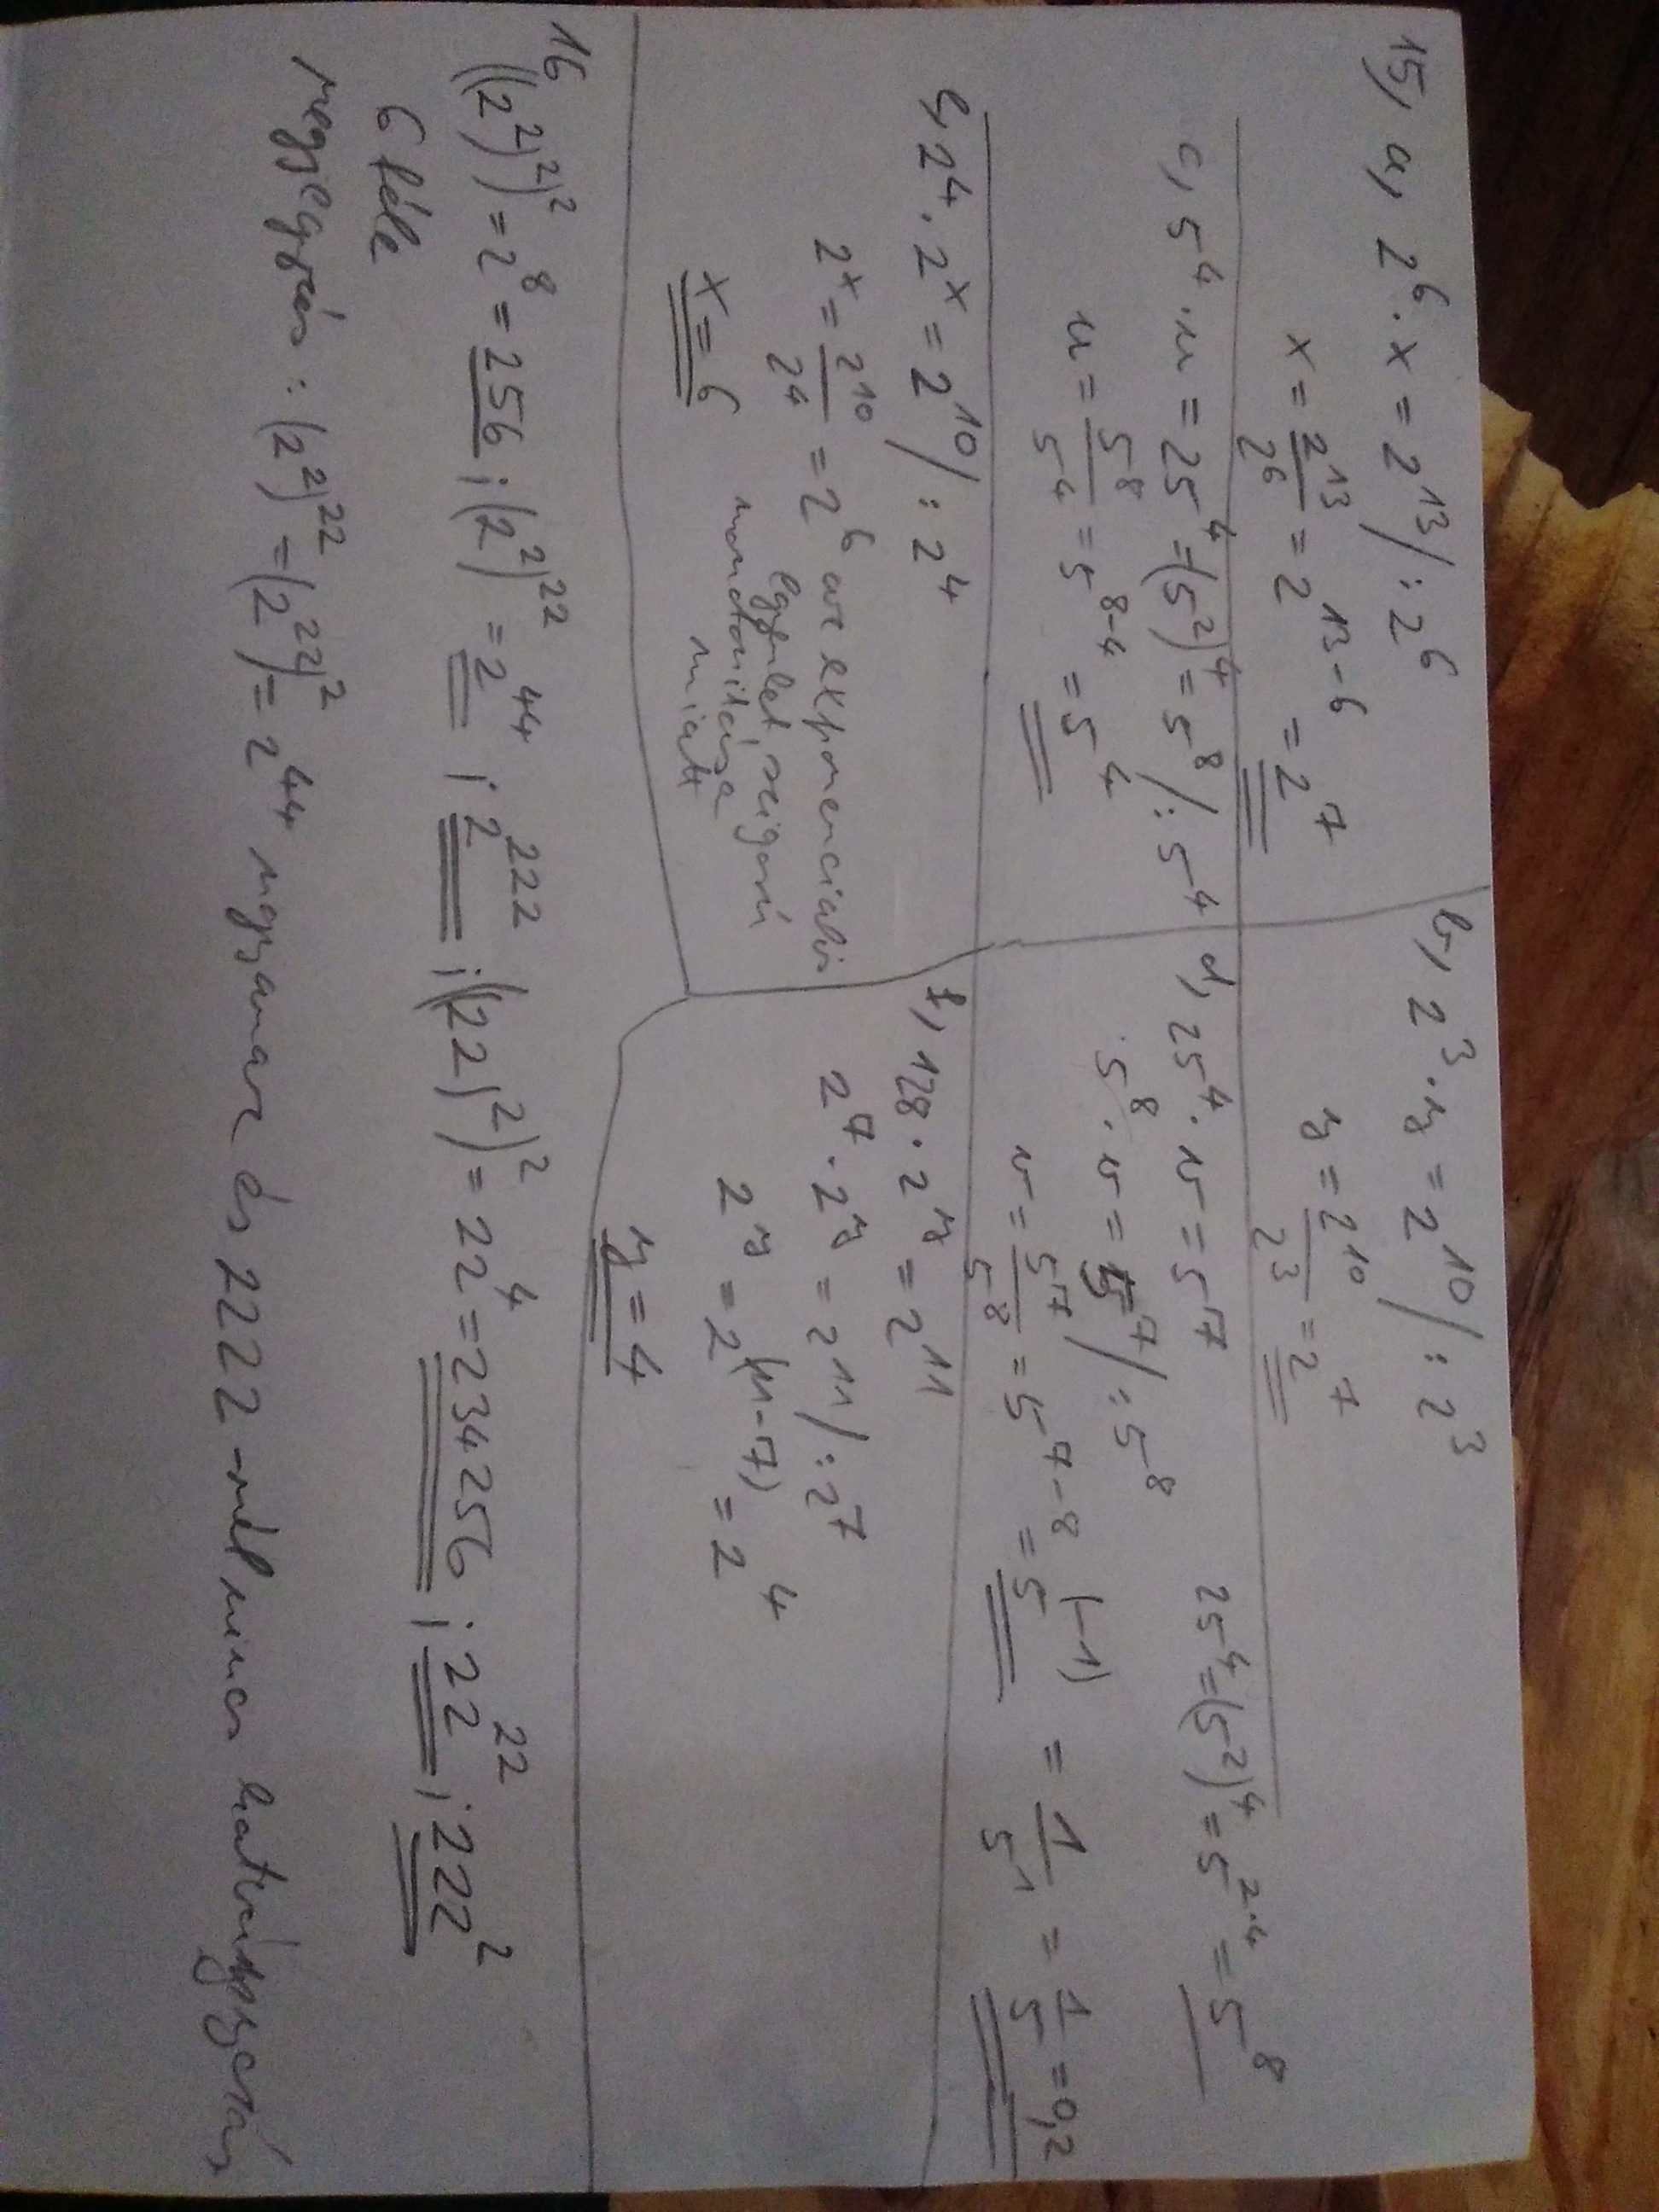 15, a, 2^6 · x = 2^13 /: 2^6
x = 2^13/2^6 = 2^(13-6) = 2^7
b, 2^3 · y = 2^10 /: 2^3
y = 2^10/2^3 = 2^7
c, 5^4 · u = 25^4 = (5^2)^4 = 5^8 /: 5^4
u = 5^8/5^4 = 5^(8-4) = 5^4
d, 25^4 · v = 5^7
25^4 = (5^2)^4 = 5^(2·4) = 5^8
5^8 · v = 5^7 /: 5^8
v = 5^7/5^8 = 5^(7-8) = 5^(-1) = 1/5^1 = 1/5 = 0,2
e, 2^4 · 2^x = 2^10 /: 2^4
2^x = 2^10/2^4 = 2^6 az exponenciális
függvény szigorú
monotonitása
miatt
x = 6
f, 128 · 2^y = 2^11
2^7 · 2^y = 2^11 /: 2^7
2^y = 2^(11-7) = 2^4
y = 4
16
((2^2)^2)^2 = 2^8 = 256 ; (2^2)^22 = 2^44 ; 2^222 ; ((22)^2)^2 = 22^4 = 234256 ; 22^22 ; 222^2
6 féle
megjegyzés : (2^2)^22 = (2^22)^2 = 2^44 ugyanaz és 2222-nél nincs hatványozás